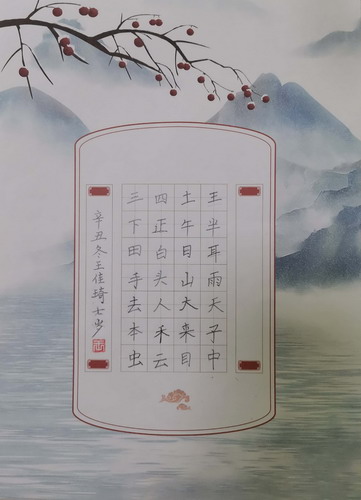 王半耳雨天子中
土午日山大目
四正白头人禾云
三下田手去本虫
辛丑冬王佳琦岁